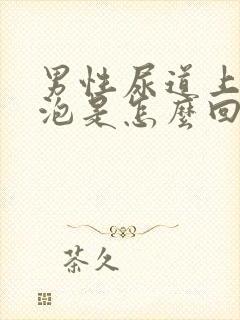 男性尿道上
泡是怎麼回
茶久